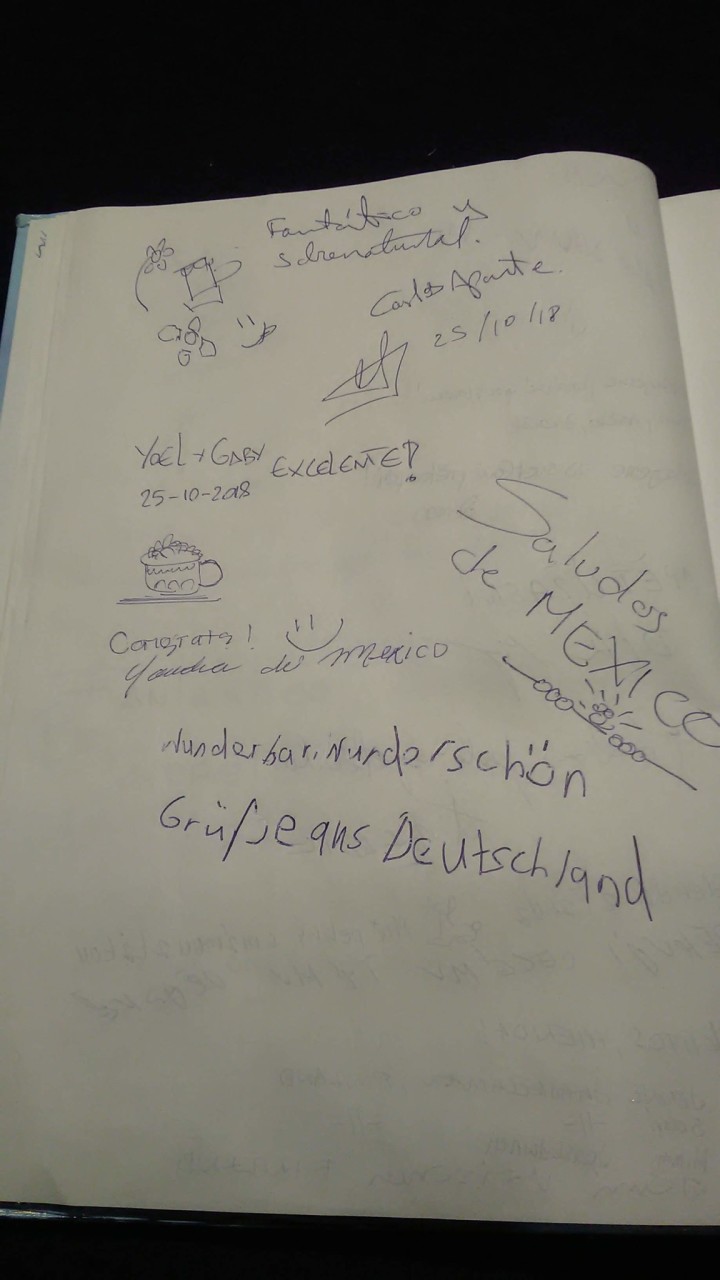 Fantástico y
sobrenatural.
Carlos Aponte.
25/10/18
YOEL + GABY EXCELENTE!
25-10-2018
Saludos
de MEXICO
Congrats!
de mexico
Wunderbar, Wunderschön
Grüße aus Deutschland